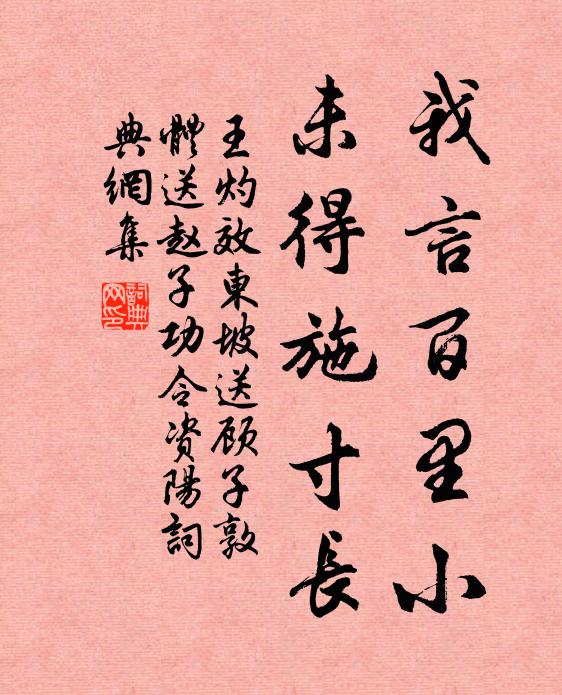 我言百里小
未得施寸長
王灼效東坡送顾子敦
體送赵子功令資陽詞
典網集
詞典
网印